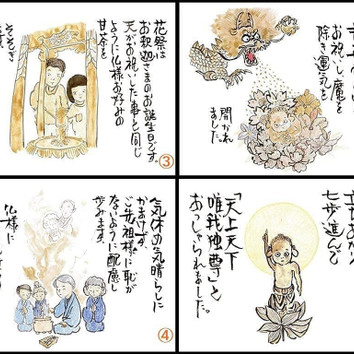 お祝いし、魔を
除き運気を
開かれ
ました。
七歩進んで
「天上天下
唯我独尊」と
おっしゃられました。
花祭は
お釈迦さまのお誕生日です。
天がお祝いした事と同じ
ように仏様お好みの
甘茶を
そそぎ
③
気休の気晴らしに
かまけず
ご先祖様に恥が
ないように配慮し
歩みます。
仏様に
④